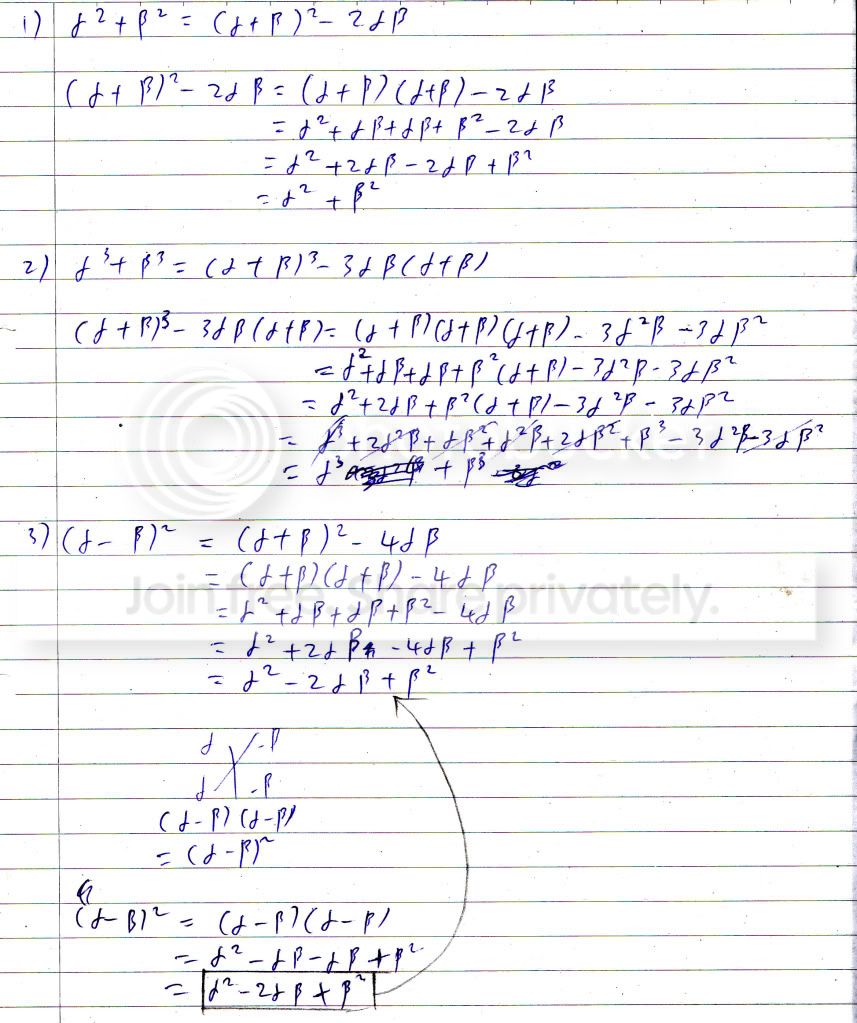 1) α² + β² = (α + β)² - 2αβ
(α + β)² - 2αβ = (α + β)(α+β) - 2αβ
= α² + αβ + αβ + β² - 2αβ
= α² + 2αβ - 2αβ + β²
= α² + β²
2) α³ + β³ = (α + β)³ - 3αβ(α+β)
(α + β)³ - 3αβ(α+β) = (α + β)(α+β)(α+β) - 3α²β - 3αβ²
= α² + αβ + αβ + β²(α+β) - 3α²β - 3αβ²
= α² + 2αβ + β²(α + β) - 3α²β - 3αβ²
= α³ + 2α²β + αβ² + α²β + 2αβ² + β³ - 3α²β - 3αβ²
= α³ + β³
3) (α - β)² = (α+β)² - 4αβ
= (α+β)(α+β) - 4αβ
Join free. Share privately.
= α² + αβ + αβ + β² - 4αβ
= α² + 2αβ - 4αβ + β²
= α² - 2αβ + β²
α -β
α -β
(α-β)(α-β)
= (α-β)²
(α-β)² = (α-β)(α-β)
= α² - αβ - αβ + β²
= α² - 2αβ + β²